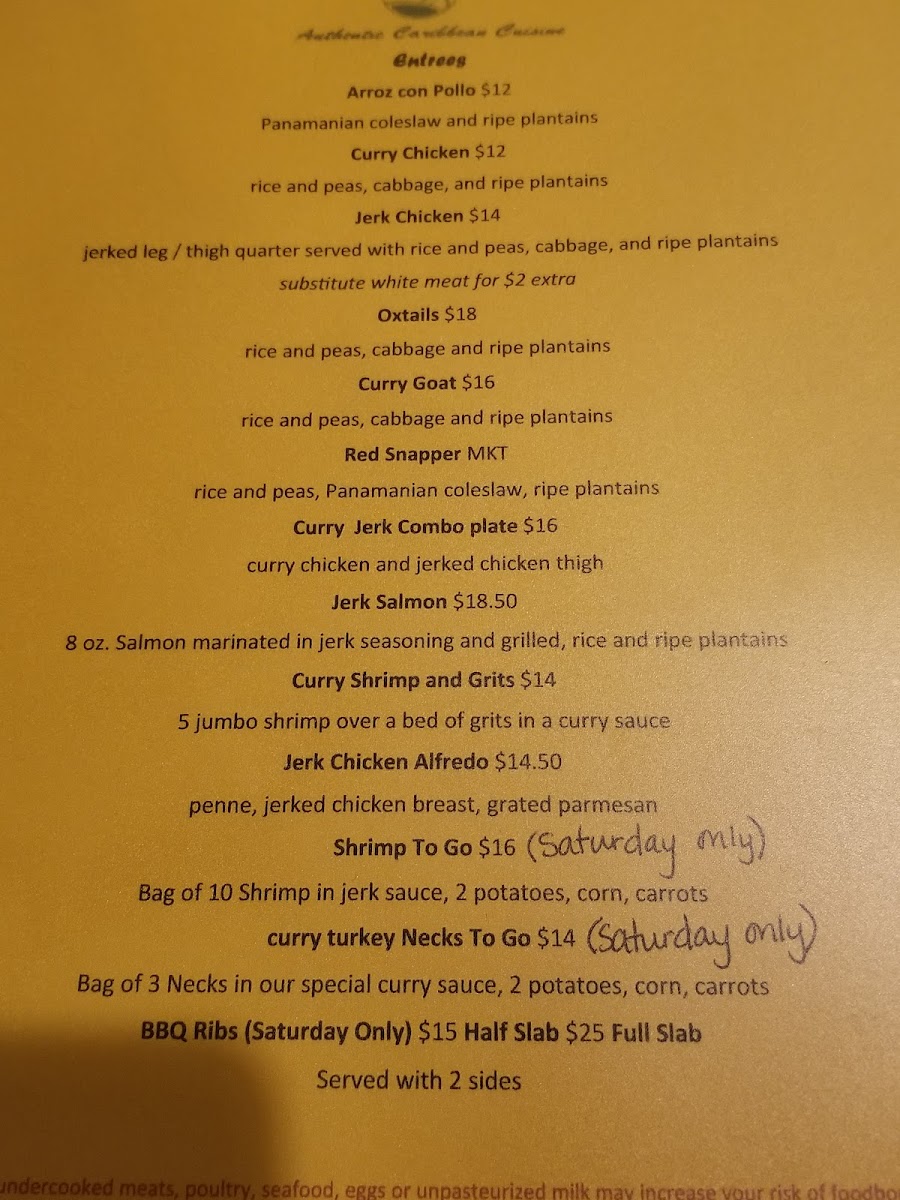 Authentic Caribbean Cuisine
Entrees
Arroz con Pollo $12
Panamanian coleslaw and ripe plantains
Curry Chicken $12
rice and peas, cabbage, and ripe plantains
Jerk Chicken $14
jerked leg / thigh quarter served with rice and peas, cabbage, and ripe plantains
substitute white meat for $2 extra
Oxtails $18
rice and peas, cabbage and ripe plantains
Curry Goat $16
rice and peas, cabbage and ripe plantains
Red Snapper MKT
rice and peas, Panamanian coleslaw, ripe plantains
Curry Jerk Combo plate $16
curry chicken and jerked chicken thigh
Jerk Salmon $18.50
8 oz. Salmon marinated in jerk seasoning and grilled, rice and ripe plantains
Curry Shrimp and Grits $14
5 jumbo shrimp over a bed of grits in a curry sauce
Jerk Chicken Alfredo $14.50
penne, jerked chicken breast, grated parmesan
Shrimp To Go $16 (Saturday only)
Bag of 10 Shrimp in jerk sauce, 2 potatoes, corn, carrots
curry turkey Necks To Go $14 (Saturday only)
Bag of 3 Necks in our special curry sauce, 2 potatoes, corn, carrots
BBQ Ribs (Saturday Only) $15 Half Slab $25 Full Slab
Served with 2 sides
undercooked meats, poultry, seafood, eggs or unpasteurized milk may increase your risk of